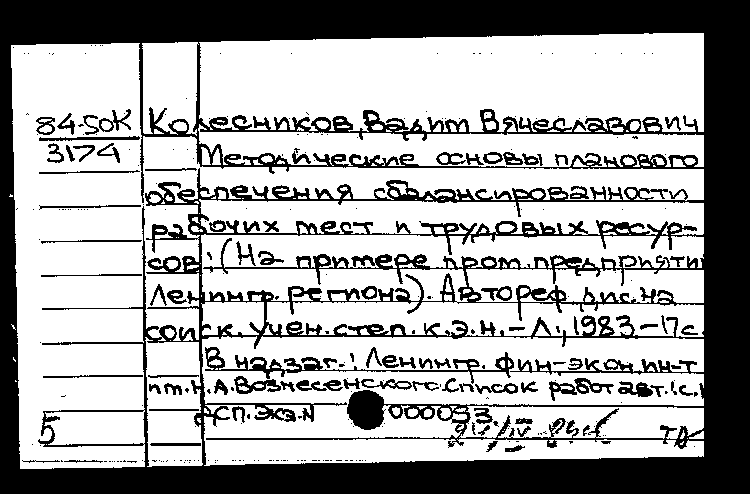 84-5OK Колесников, Вадим Вячеславович
3174 Методические основы планового
обеспечения сбалансированности
рабочих мест и трудовых ресур-
сов: (На примере пром. предприяти
Ленингр. региона). Автореф. дис. на
соиск. учен. степ. к.э.н. - Л., 1983 - 17с.
В надзаг.: Ленингр. фин-экон. ин-т
им. Н.А. Вознесенского. Список работ авт.: с.
ДСП. Экз. N 000093
5 ТД